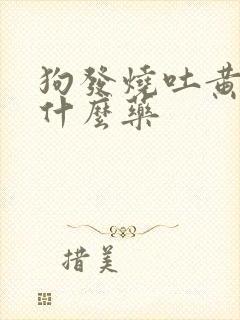 狗發燒吐黃
什麼藥
措美